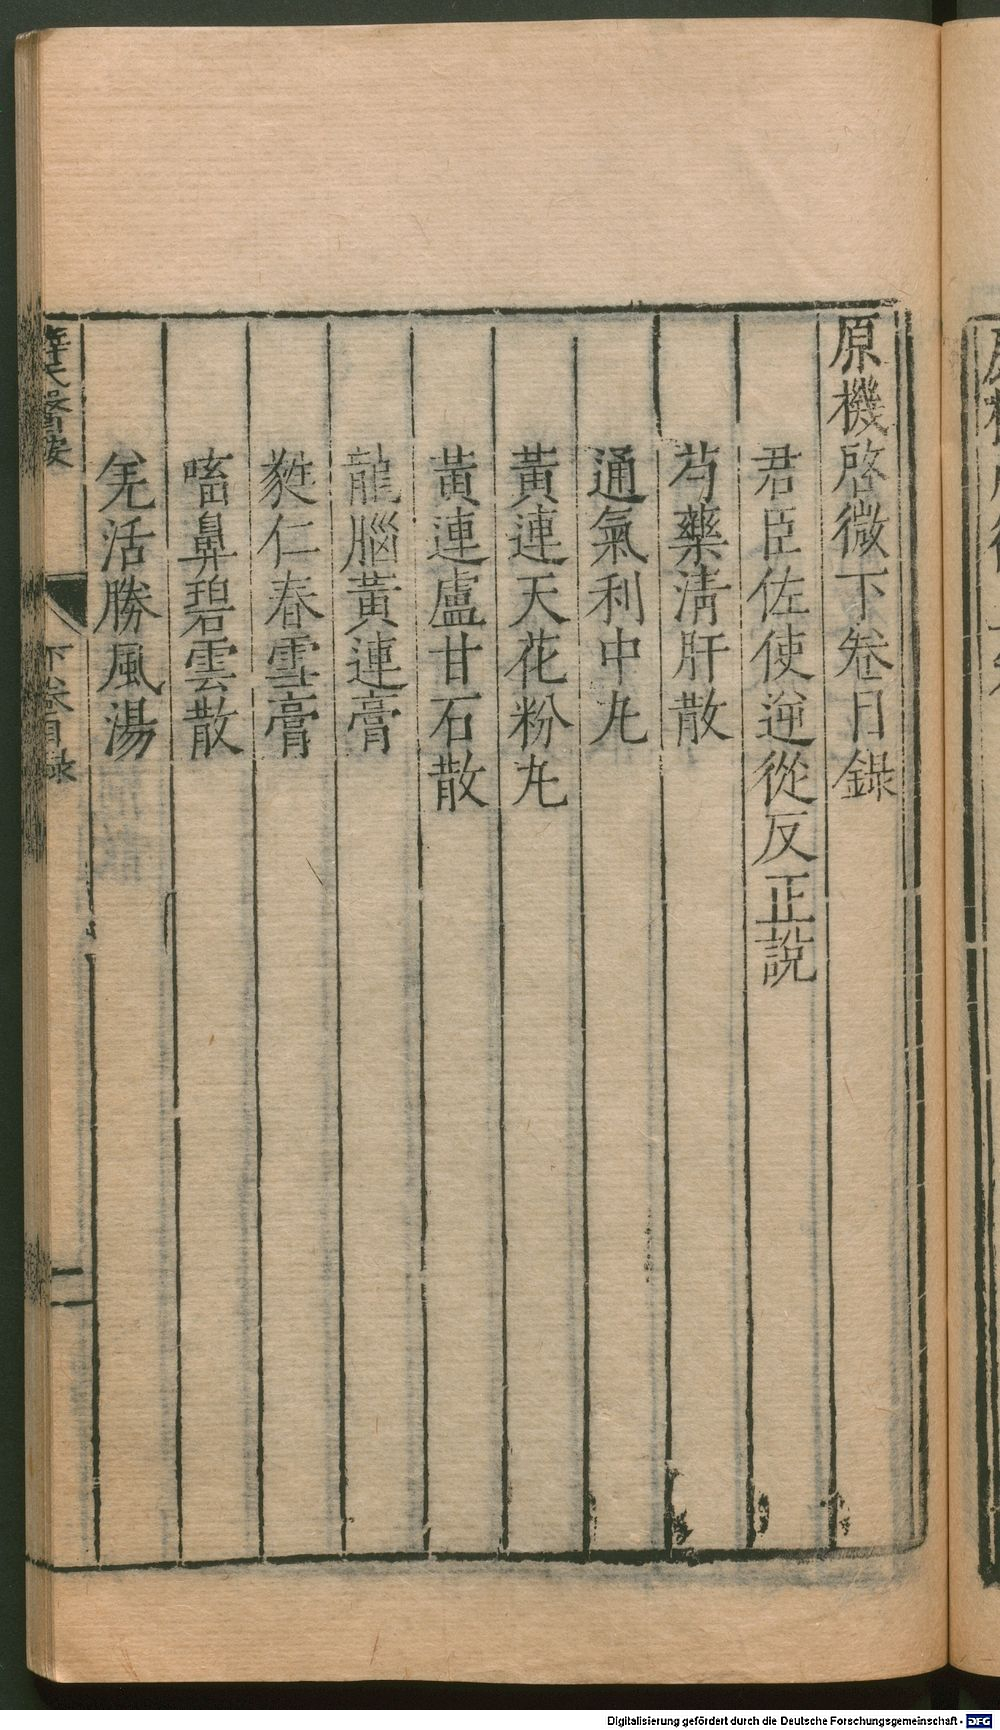 原機啓微下卷目錄
君臣佐使逆從反正說
芍藥淸肝散
通氣利中丸
黃連天花粉丸
黃連盧甘石散
龍腦黃連膏
蕤仁春雪膏
㗜鼻碧雲散
羌活勝風湯
薛氏醫按
下卷目錄
一
Digitalisierung gefördert durch die Deutsche Forschungsgemeinschaft - DFG